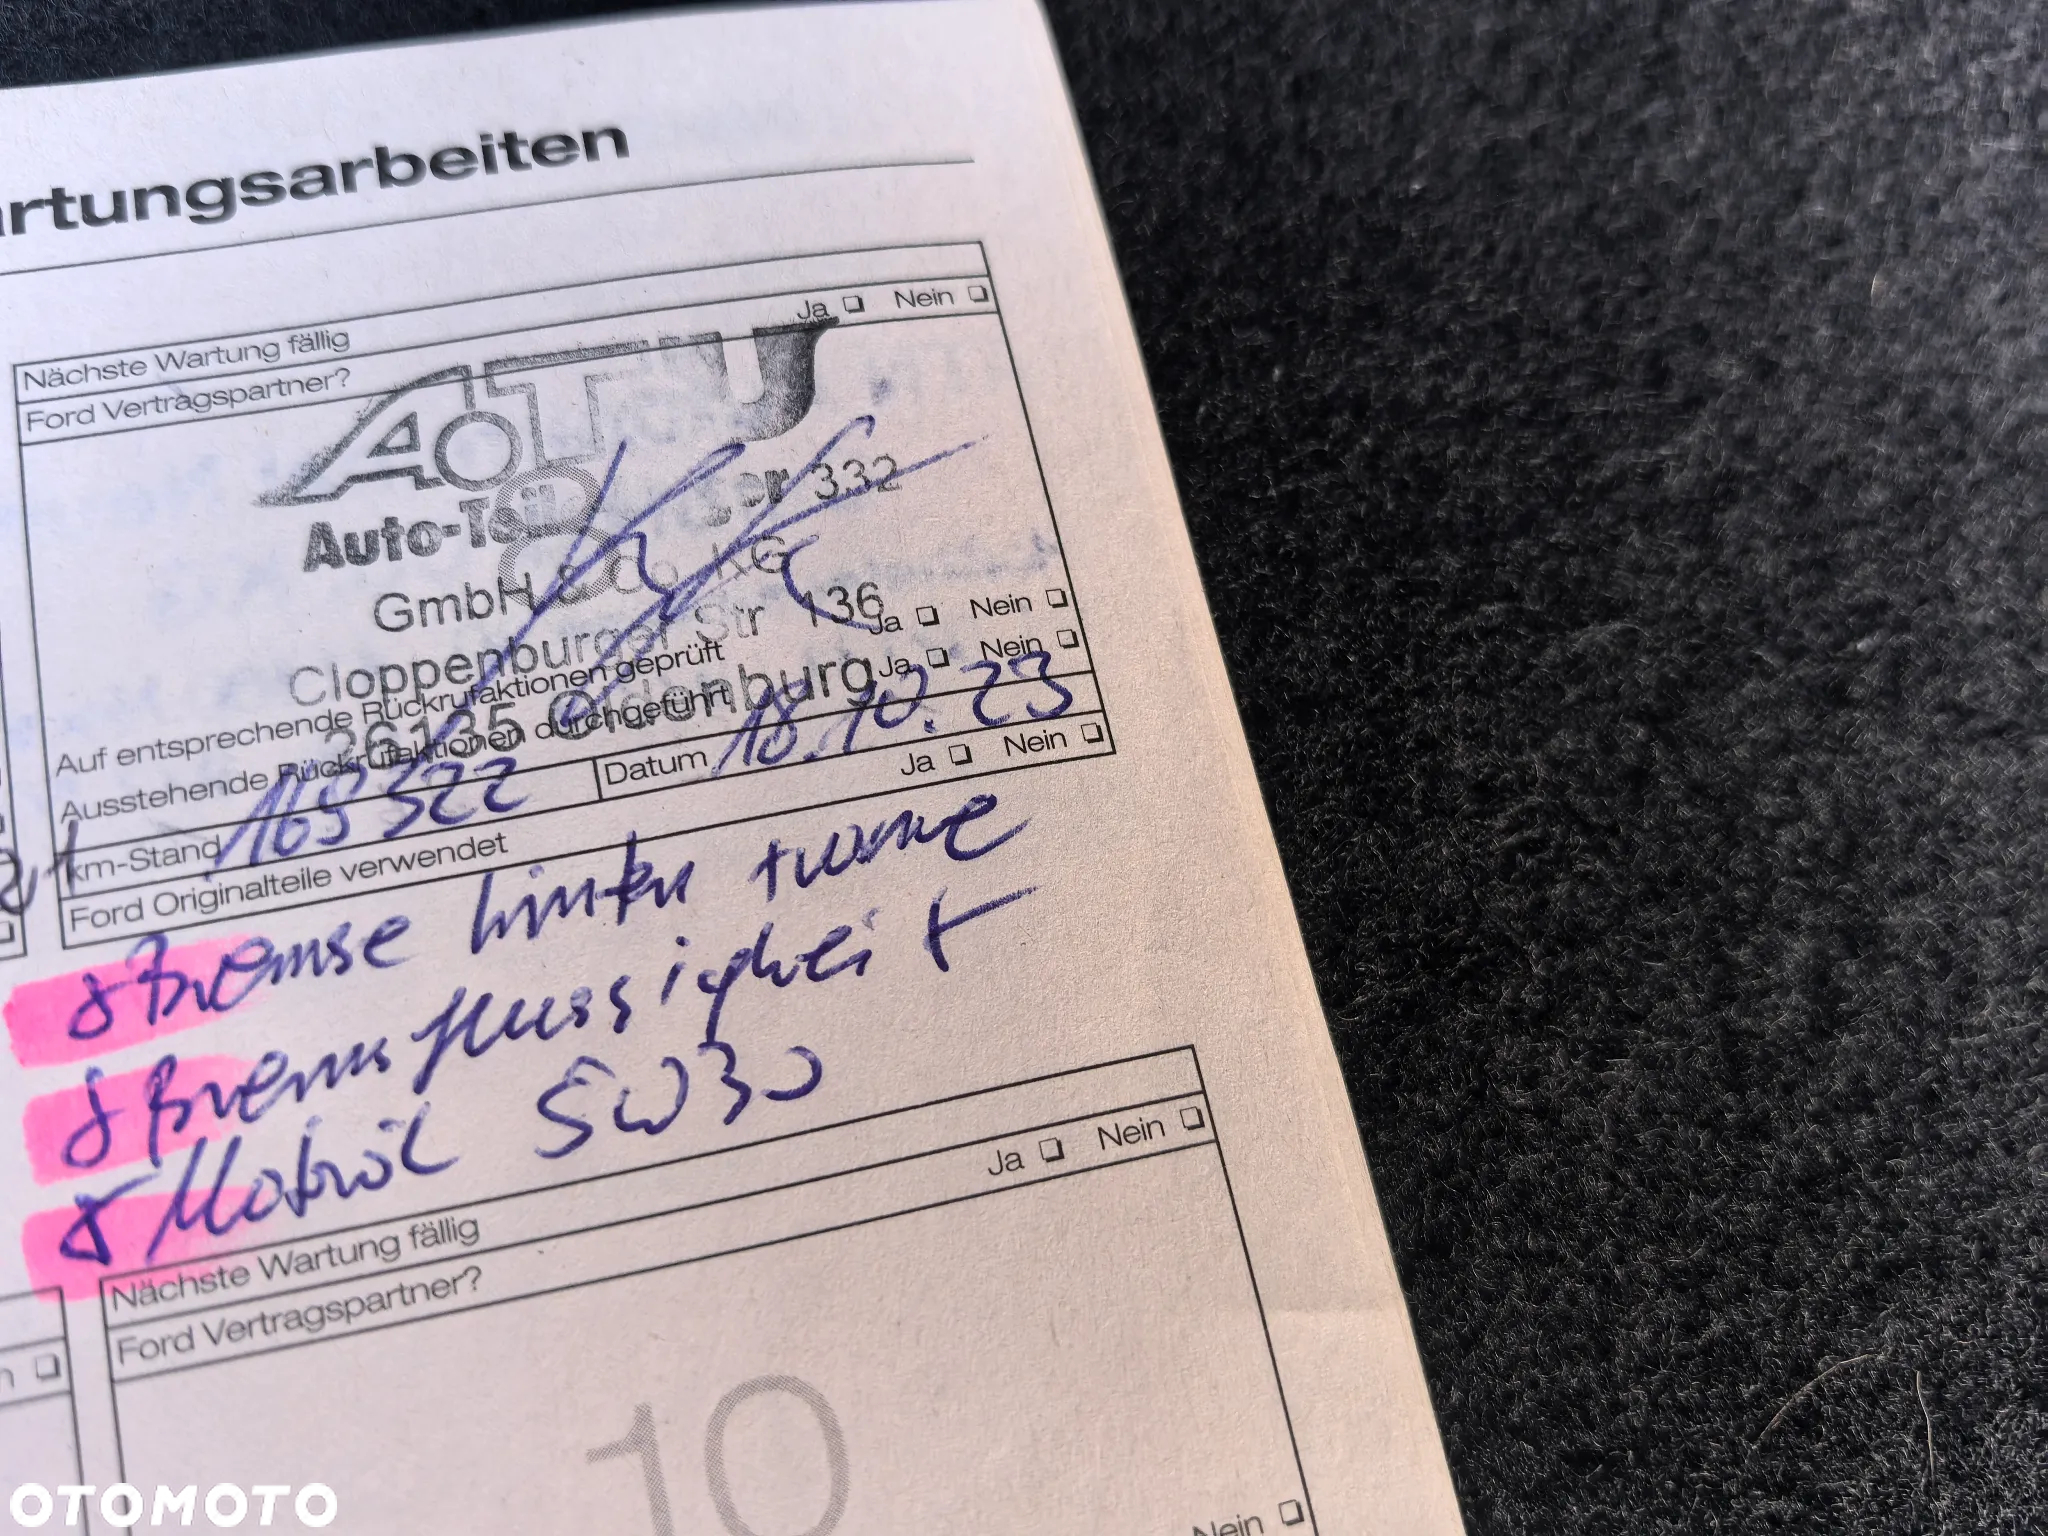 artungsarbeiten
Ja Nein
Nächste Wartung fällig
Ford Vertragspartner?
A.T.U
8
Auto-Teile Unger 332
GmbH & Co. KG
Cloppenburger Str 136
26135 Oldenburg
Auf entsprechende Rückrufaktionen geprüft Ja Nein
Ausstehende Rückrufaktionen durchgeführt Ja Nein
km-Stand 169322 Datum 18.10.23
Ford Originalteile verwendet Ja Nein
Bremse hinten + vorne
Bremsflüssigkeit
Motoröl 5W30
Nächste Wartung fällig Ja Nein
Ford Vertragspartner?
10
Nein
OTOMOTO